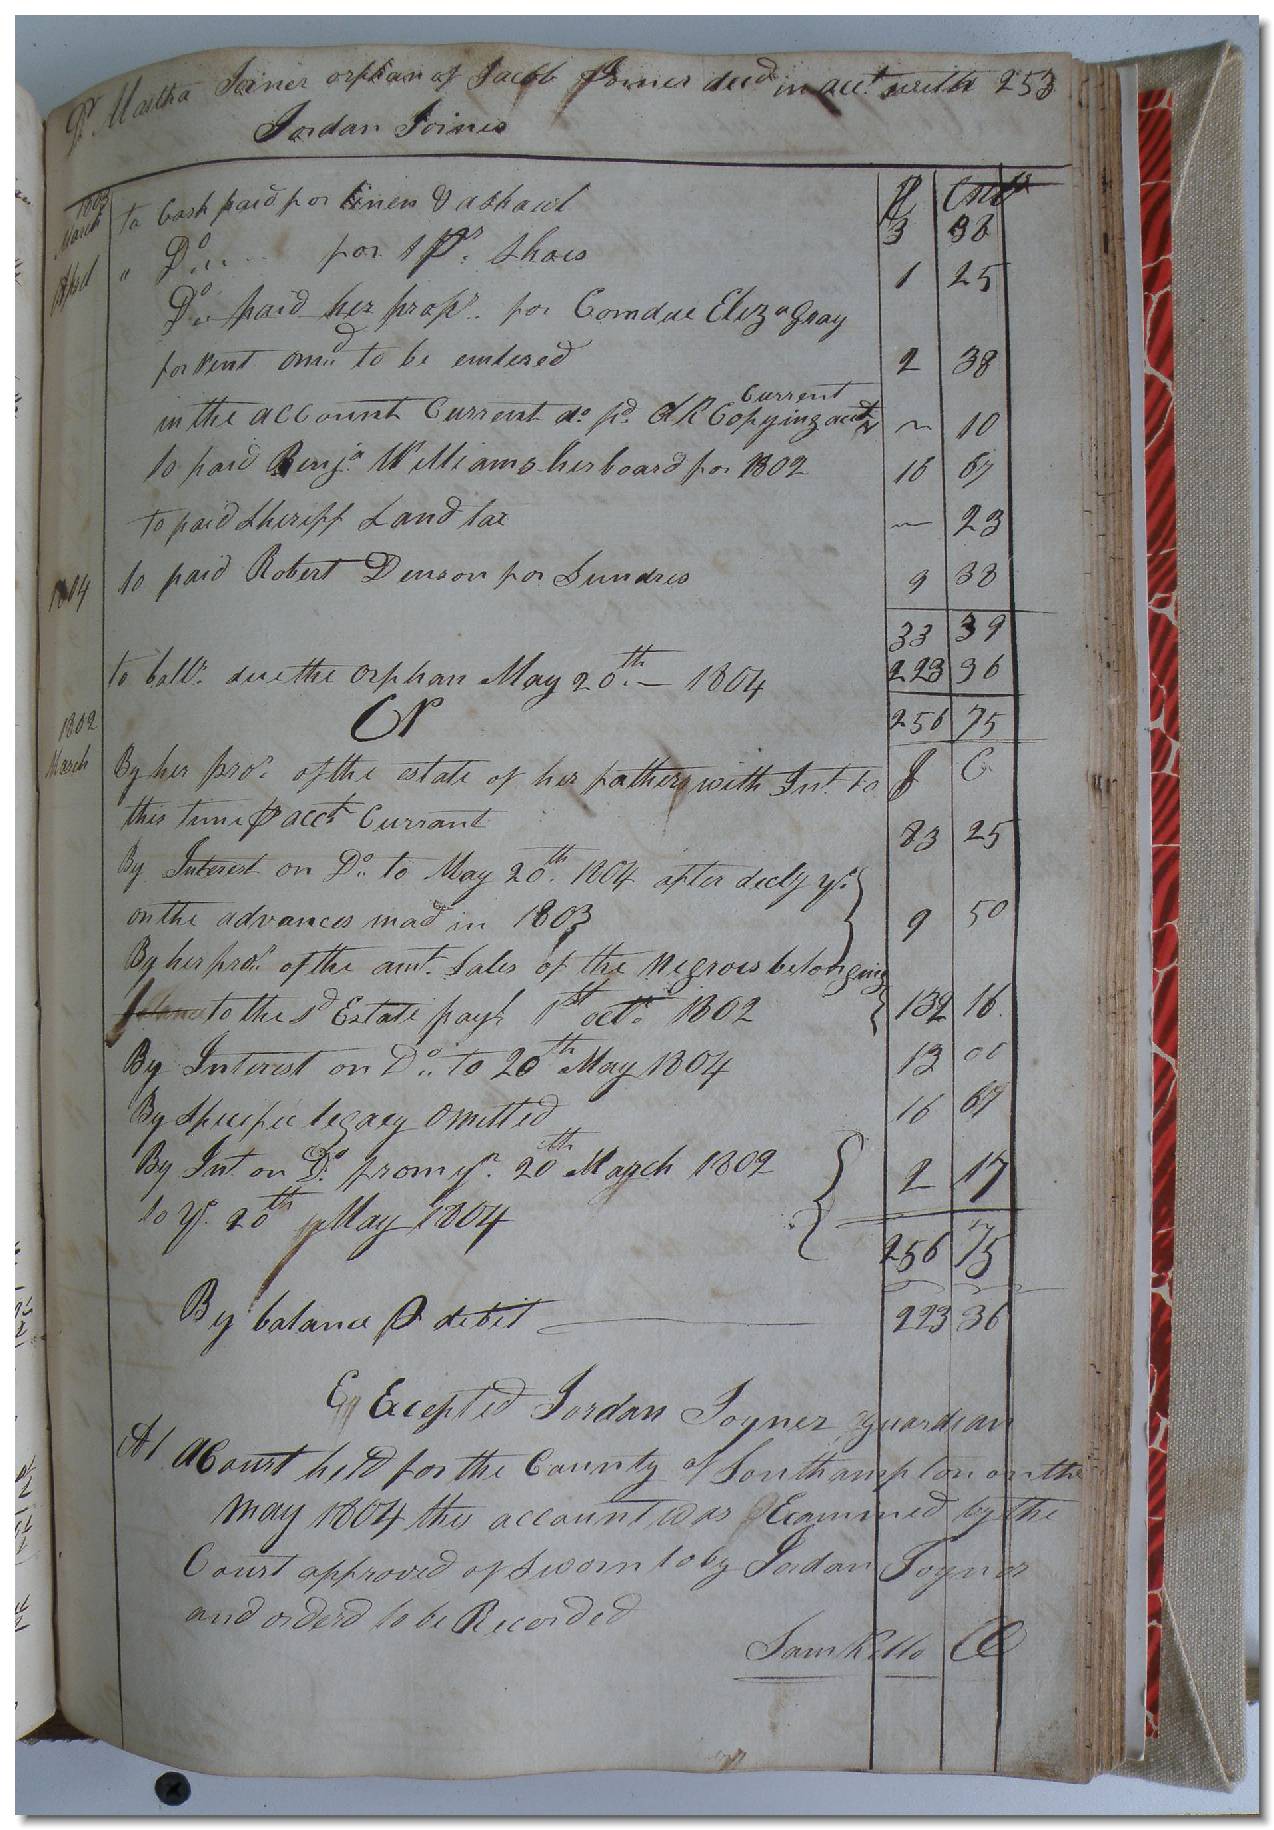 Dr. Martha Joiner orphan of Jacob Joiner decd in acct with 253
Jordan Joiner
1803 $ Cents
March to Cash paid for linen & a shawl 3 38
Apl " Do for 1 pr. Shoes 1 25
Do paid her propn. for Eliza Gray
for rent omd to be entered 2 38
Current
in the account Current do. pd. Copying acct ~ 10
to paid Benja Williams her board for 1802 16 67
to paid Sheriff Land tax ~ 23
1804 to paid Robert Denson for Sundres 9 38
33 39
to ballr. due the Orphan May 20th. — 1804 223 36
Cr 256 75
1802
March By her pron. of the estate of her fathers with Int. to $ C
this time ⅌ acct Currant 83 25
By Interest on Do. to May 20th. 1804 after yr.
on the advances mad in 1803 9 50
By her pron. of the amt. Sales of the Negroes belonging
to the sd Estate payl 1st octr. 1802 132 16
By Interest on Do. to 20th May 1804 13 00
By specific legacy Omitted 16 67
By Int. on Do. from ye. 20th March 1802 2 17
to ye. 20th May 1804
256 75
By balance ⅌ debit 223 36
Excepted Jordan Joyner guardian
At a Court held for the County of Southampton on the
May 1804 this account was Examined by the
Court approved of Sworn to by Jordan Joyner
and orderd to be Recorded
Sam Kello CC